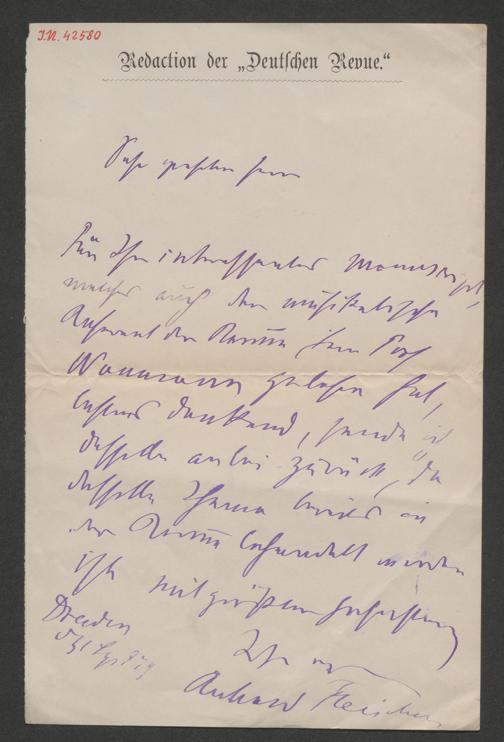 J.N. 42580
Redaction der „Deutschen Revue.“
Sehr geehrter Herr
Für Ihr interessantes Manuscript,
welches auch der musikalische
Referent der Revue Herr Prof
Naumann gelesen hat,
bestens dankend, sende ich
dasselbe anbei zurück, da
dasselbe Thema bereits in
der Revue behandelt worden
ist. Mit größter Hochachtung
Dresden
Ihr
Richard Fleischer